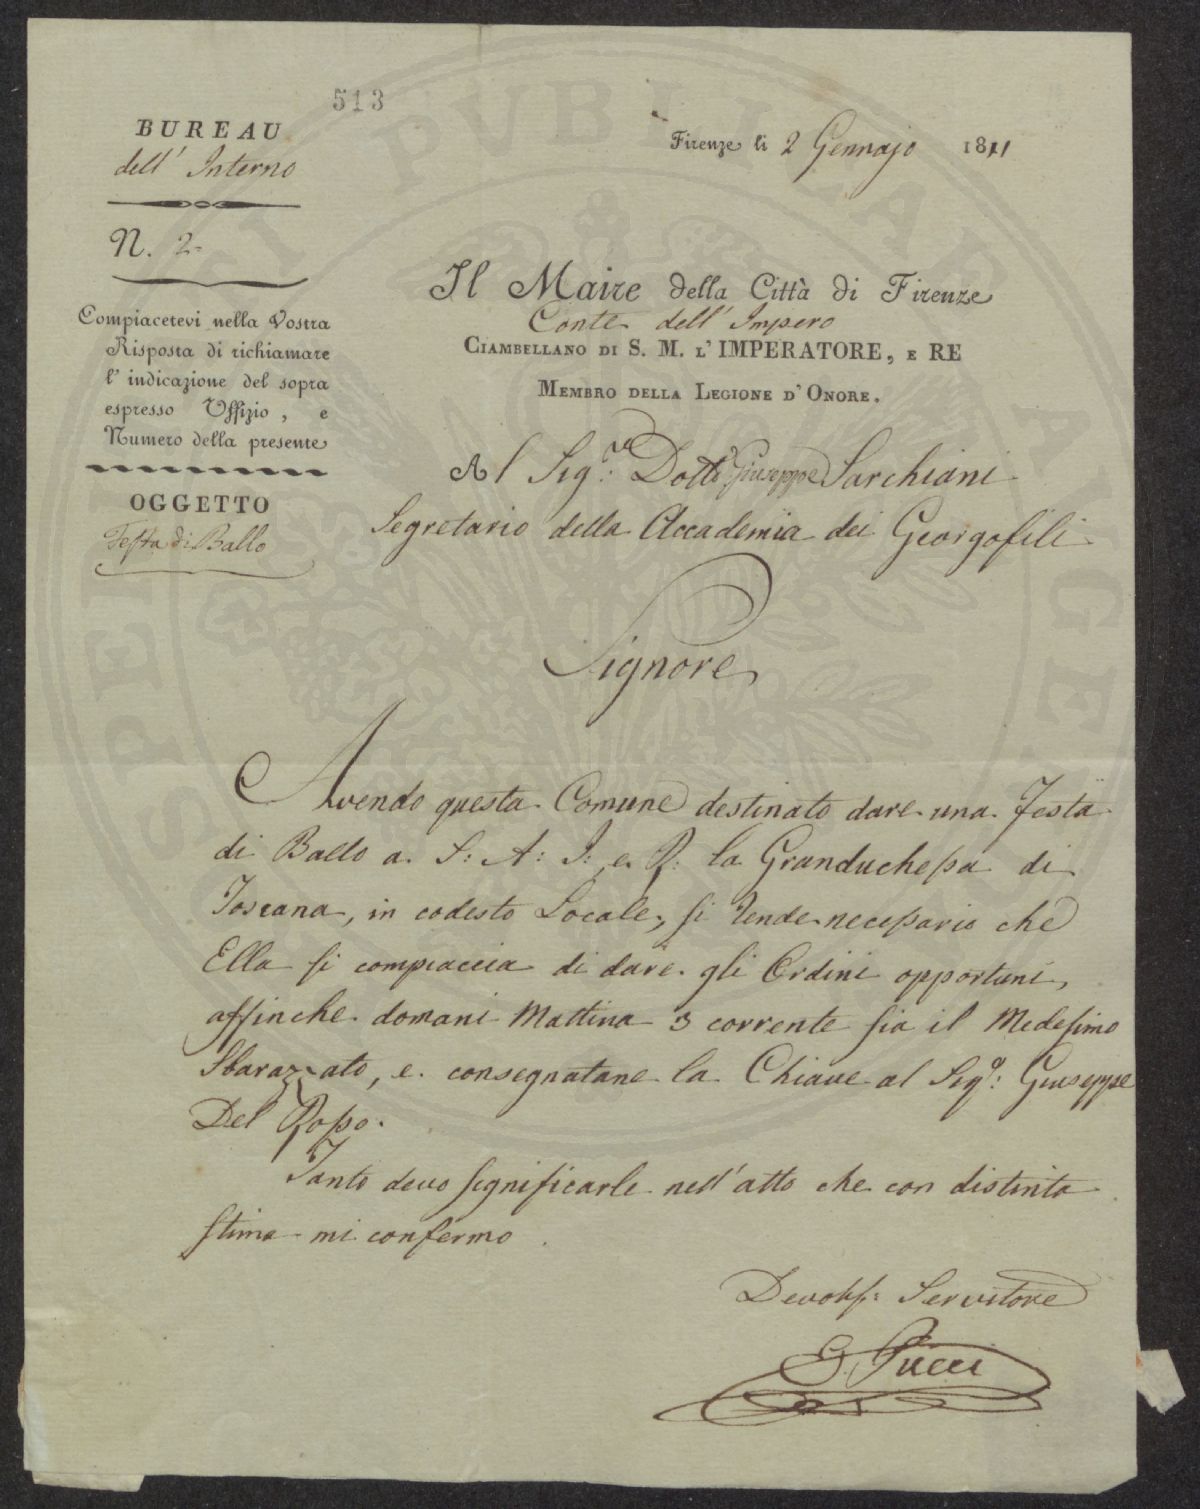 513
BUREAU
dell' Interno
N. 2=
Compiacetevi nella Vostra
Risposta di richiamare
l' indicazione del sopra
espresso Uffizio, e
Numero della presente
OGGETTO
Festa di Ballo
Firenze li 2 Gennajo 1811
Il Maire della Città di Firenze
Conte dell' Impero
CIAMBELLANO DI S. M. L' IMPERATORE, E RE
MEMBRO DELLA LEGIONE D' ONORE.
Al Sig.re Dott. Giuseppe Sarchiani
Segretario della Accademia dei Georgofili
Signore
Avendo questa Comune destinato dare una Festa
di Ballo a S: A: I: e R: la Granduchessa di
Toscana, in codesto Locale, si rende necessario che
Ella si compiaccia di dare gli Ordini opportuni,
affinche domani Mattina 3 corrente sia il Medesimo
Sbarazzato, e consegnatane la Chiave al Sig.e: Giuseppe
Del Rosso.
Tanto devo significarle nell' atto che con distinta
stima mi confermo
Devotss: Servitore
G. Pucci